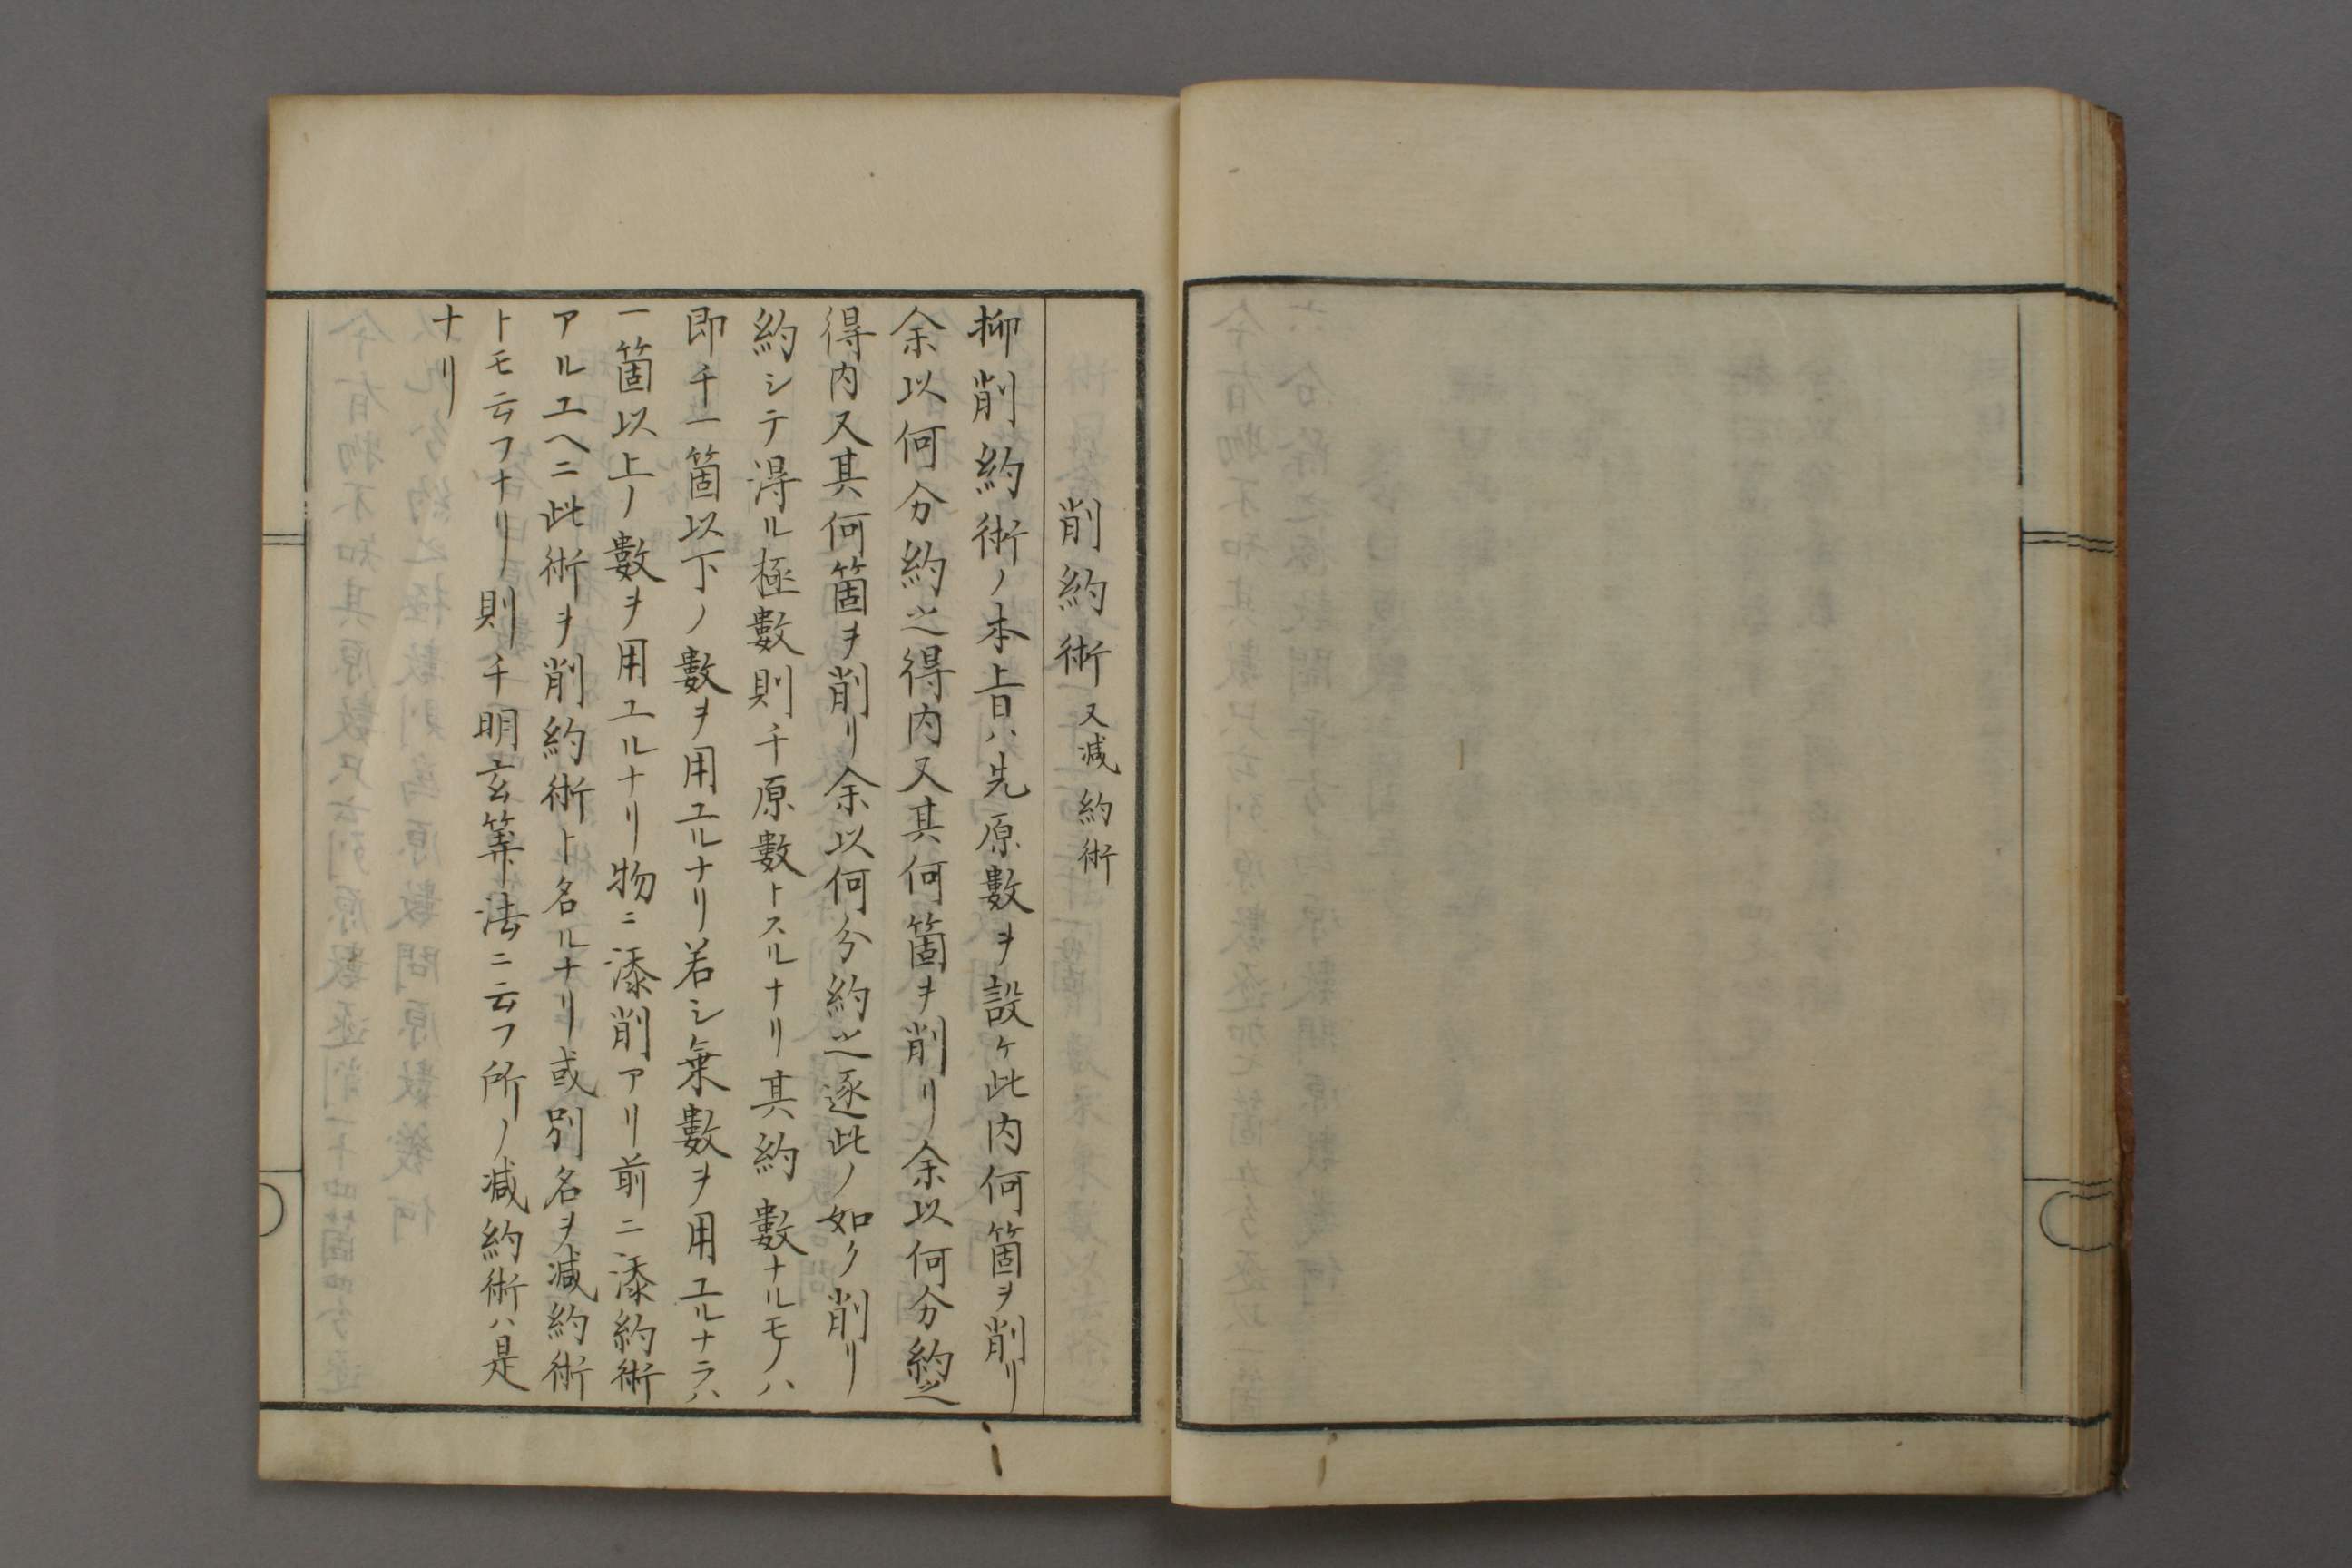 削約術 又減約術
抑削約術ノ本旨ハ先原數ヲ設ケ此内何箇ヲ削リ
余以何分約之得内又其何箇ヲ削リ余以何分約之
得内又其何箇ヲ削リ余以何分約之逐此ノ如ク削リ
約シテ得ル極數則チ原數トスルナリ其約數ナルモノハ
即チ一箇以下ノ數ヲ用ユルナリ若シ乗數ヲ用ユルナラハ
一箇以上ノ數ヲ用ユルナリ物ニ添削アリ前ニ添約術
アルユヘニ此術ヲ削約術ト名ルナリ或別名ヲ減約術
トモ云フナリ則チ明玄筭法ニ云フ所ノ減約術ハ是
ナリ